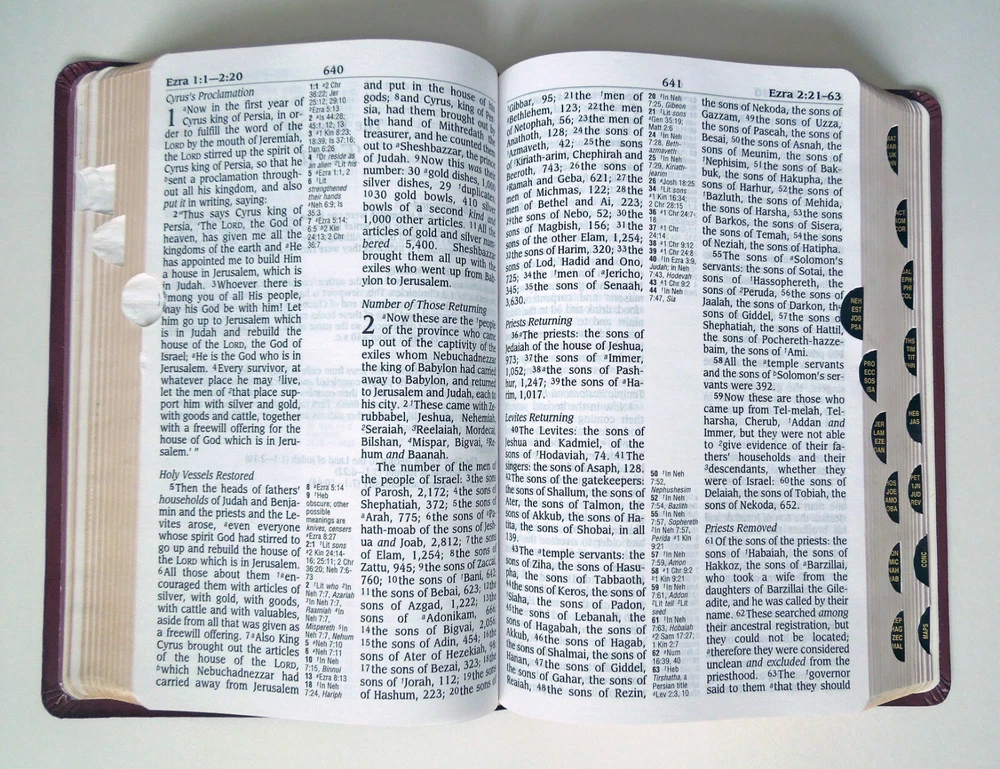 Ezra 1:1—2:20
640
Cyrus's Proclamation
1 ªNow in the first year of
Cyrus king of Persia, in or-
der to fulfill the word of the
LORD by the mouth of Jeremiah,
the LORD stirred up the spirit of
Cyrus king of Persia, so that he
ªsent a proclamation through-
out all his kingdom, and also
put it in writing, saying:
2 ªThus says Cyrus king of
Persia, 'The LORD, the God of
heaven, has given me all the
kingdoms of the earth and ªHe
has appointed me to build Him
a house in Jerusalem, which is
in Judah. 3Whoever there is
among you of all His people,
may his God be with him! Let
him go up to Jerusalem which
is in Judah and rebuild the
house of the LORD, the God of
Israel; ªHe is the God who is in
Jerusalem. 4Every survivor, at
whatever place he may ¹live,
let the men of ²that place sup-
port him with silver and gold,
with goods and cattle, together
with a freewill offering for the
house of God which is in Jeru-
salem.' "
Holy Vessels Restored
5Then the heads of fathers'
households of Judah and Benja-
min and the priests and the Le-
vites arose, ªeven everyone
whose spirit God had stirred to
go up and rebuild the house of
the LORD which is in Jerusalem.
6All those about them ¹ªen-
couraged them with articles of
silver, with gold, with goods,
with cattle and with valuables,
aside from all that was given as
a freewill offering. 7ªAlso King
Cyrus brought out the articles
of the house of the LORD,
ᵇwhich Nebuchadnezzar had
carried away from Jerusalem
1:1 ª2 Chr
36:22; Jer
25:12; 29:10
ᵇEzra 5:13
2 ªIs 44:28;
45:1, 12, 13
3 ª1 Kin 8:23;
18:39; Is 37:16;
Dan 6:26
4 ¹Or reside as
an alien ²Lit his
5 ªEzra 1:1, 2
6 ¹Lit
strengthened
their hands
ªNeh 6:9; Is
35:3
7 ªEzra 5:14;
6:5 ᵇ2 Kin
24:13; 2 Chr
36:7
8 ªEzra 5:14
9 ¹Heb
obscure; other
possible
meanings are
knives, censers
ªEzra 8:27
2:1 ¹Lit sons
ª2 Kin 24:14-
16; 25:11; 2 Chr
36:20; Neh 7:6-
73
2 ¹Lit who ²In
Neh 7:7, Azariah
³In Neh 7:7,
Raamiah ⁴In
Neh 7:7,
Mispereth ⁵In
Neh 7:7, Nehum
5 ªNeh 7:10
6 ªNeh 7:11
10 ¹In Neh
7:15, Binnui
13 ªEzra 8:13
18 ¹In Neh
7:24, Hariph
and put in the house of his
gods; 8and Cyrus, king of Per-
sia, had them brought out by
the hand of Mithredath the
treasurer, and he counted them
out to ªSheshbazzar, the prince
of Judah. 9Now this was their
number: 30 ªgold dishes, 1,000
silver dishes, 29 ¹duplicates;
1030 gold bowls, 410 silver
bowls of a second kind and
1,000 other articles. 11All the
articles of gold and silver num-
bered 5,400. Sheshbazzar
brought them all up with the
exiles who went up from Bab-
ylon to Jerusalem.
Number of Those Returning
2 ªNow these are the ¹people
of the province who came
up out of the captivity of the
exiles whom Nebuchadnezzar
the king of Babylon had carried
away to Babylon, and returned
to Jerusalem and Judah, each to
his city. 2 ¹These came with Ze-
rubbabel, Jeshua, Nehemiah,
²Seraiah, ³Reelaiah, Mordecai,
Bilshan, ⁴Mispar, Bigvai, ⁵Re-
hum and Baanah.
The number of the men of
the people of Israel: 3the sons
of Parosh, 2,172; 4the sons of
Shephatiah, 372; 5the sons of
ªArah, 775; 6the sons of ªPa-
hath-moab of the sons of Jesh-
ua and Joab, 2,812; 7the sons
of Elam, 1,254; 8the sons of
Zattu, 945; 9the sons of Zaccai,
760; 10the sons of ¹Bani, 642;
11the sons of Bebai, 623; 12the
sons of Azgad, 1,222; 13the
sons of ªAdonikam, 666;
14the sons of Bigvai, 2,056;
15the sons of Adin, 454; 16the
sons of Ater of Hezekiah, 98;
17the sons of Bezai, 323; 18the
sons of ¹Jorah, 112; 19the sons
of Hashum, 223; 20the sons of
641
Ezra 2:21–63
¹Gibbar, 95; 21the ¹men of
ªBethlehem, 123; 22the men
of Netophah, 56; 23the men of
Anathoth, 128; 24the sons of
¹Azmaveth, 42; 25the sons of
¹Kiriath-arim, Chephirah and
Beeroth, 743; 26the sons of
ªRamah and Geba, 621; 27the
men of Michmas, 122; 28the
men of Bethel and Ai, 223;
29the sons of Nebo, 52; 30the
sons of Magbish, 156; 31the
sons of the other Elam, 1,254;
32the sons of Harim, 320; 33the
sons of Lod, Hadid and Ono,
725; 34the ¹men of ªJericho,
345; 35the sons of Senaah,
3,630.
Priests Returning
36ªThe priests: the sons of
Jedaiah of the house of Jeshua,
973; 37the sons of ªImmer,
1,052; 38ªthe sons of Pash-
hur, 1,247; 39the sons of ªHa-
rim, 1,017.
Levites Returning
40The Levites: the sons of
Jeshua and Kadmiel, of the
sons of ¹Hodaviah, 74. 41The
singers: the sons of Asaph, 128.
42The sons of the gatekeepers:
the sons of Shallum, the sons of
Ater, the sons of Talmon, the
sons of Akkub, the sons of Ha-
tita, the sons of Shobai, in all
139.
43The ªtemple servants: the
sons of Ziha, the sons of Hasu-
pha, the sons of Tabbaoth,
44the sons of Keros, the sons of
¹Siaha, the sons of Padon,
45the sons of Lebanah, the
sons of Hagabah, the sons of
Akkub, 46the sons of Hagab,
the sons of Shalmai, the sons of
Hanan, 47the sons of Giddel,
the sons of Gahar, the sons of
Reaiah, 48the sons of Rezin,
20 ¹In Neh
7:25, Gibeon
21 ¹Lit sons
ªGen 35:19;
Matt 2:6
24 ¹In Neh
7:28, Beth-
azmaveth
25 ¹In Neh
7:29, Kiriath-
jearim
26 ªJosh 18:25
34 ¹Lit sons
ª1 Kin 16:34;
2 Chr 28:15
36 ª1 Chr 24:7-
18
37 ª1 Chr
24:14
38 ª1 Chr 9:12
39 ª1 Chr 24:8
40 ¹In Ezra 3:9,
Judah; in Neh
7:43, Hodevah
43 ª1 Chr 9:2
44 ¹In Neh
7:47, Sia
50 ¹In Neh
7:52,
Nephushesim
52 ¹In Neh
7:54, Bazlith
55 ¹In Neh
7:57, Sophereth
ª1 Kin
9:21
57 ¹In Neh
7:59, Amon
58 ª1 Chr 9:2
ᵇ1 Kin 9:21
59 ¹In Neh
7:61, Addon
²Lit tell ³Lit
seed
61 ¹In Neh
7:63, Hobaiah
ª2 Sam 17:27;
1 Kin 2:7
62 ªNum
16:39, 40
63 ¹Heb
Tirshatha, a
Persian title
ªLev 2:3, 10
the sons of Nekoda, the sons of
Gazzam, 49the sons of Uzza,
the sons of Paseah, the sons of
Besai, 50the sons of Asnah, the
sons of Meunim, the sons of
¹Nephisim, 51the sons of Bak-
buk, the sons of Hakupha, the
sons of Harhur, 52the sons of
¹Bazluth, the sons of Mehida,
the sons of Harsha, 53the sons
of Barkos, the sons of Sisera,
the sons of Temah, 54the sons
of Neziah, the sons of Hatipha.
55The sons of ªSolomon's
servants: the sons of Sotai, the
sons of ¹Hassophereth, the sons
of ²Peruda, 56the sons of
Jaalah, the sons of Darkon, the
sons of Giddel, 57the sons of
Shephatiah, the sons of Hattil,
the sons of Pochereth-hazze-
baim, the sons of ¹Ami.
58All the ªtemple servants
and the sons of ᵇSolomon's ser-
vants were 392.
59Now these are those who
came up from Tel-melah, Tel-
harsha, Cherub, ¹Addan and
Immer, but they were not able
to ²give evidence of their fa-
thers' households and their
³descendants, whether they
were of Israel: 60the sons of
Delaiah, the sons of Tobiah, the
sons of Nekoda, 652.
Priests Removed
61Of the sons of the priests:
the sons of ¹Habaiah, the sons of
Hakkoz, the sons of ªBarzillai,
who took a wife from the
daughters of Barzillai the Gile-
adite, and he was called by their
name. 62These searched among
their ancestral registration, but
they could not be located;
ªtherefore they were considered
unclean and excluded from the
priesthood. 63The ¹governor
said to them ªthat they should
NEH
EST
JOB
PSA
PRO
ECC
SOS
ISA
JER
LAM
EZE
DAN
HOS
JOE
AMO
OBA
ACT
ROM
COR
GAL
EPH
PHI
COL
THS
TIM
TIT
HEB
JAS
PET
JUD
REV
CONC
MAPS
HAG
ZEC
MAL